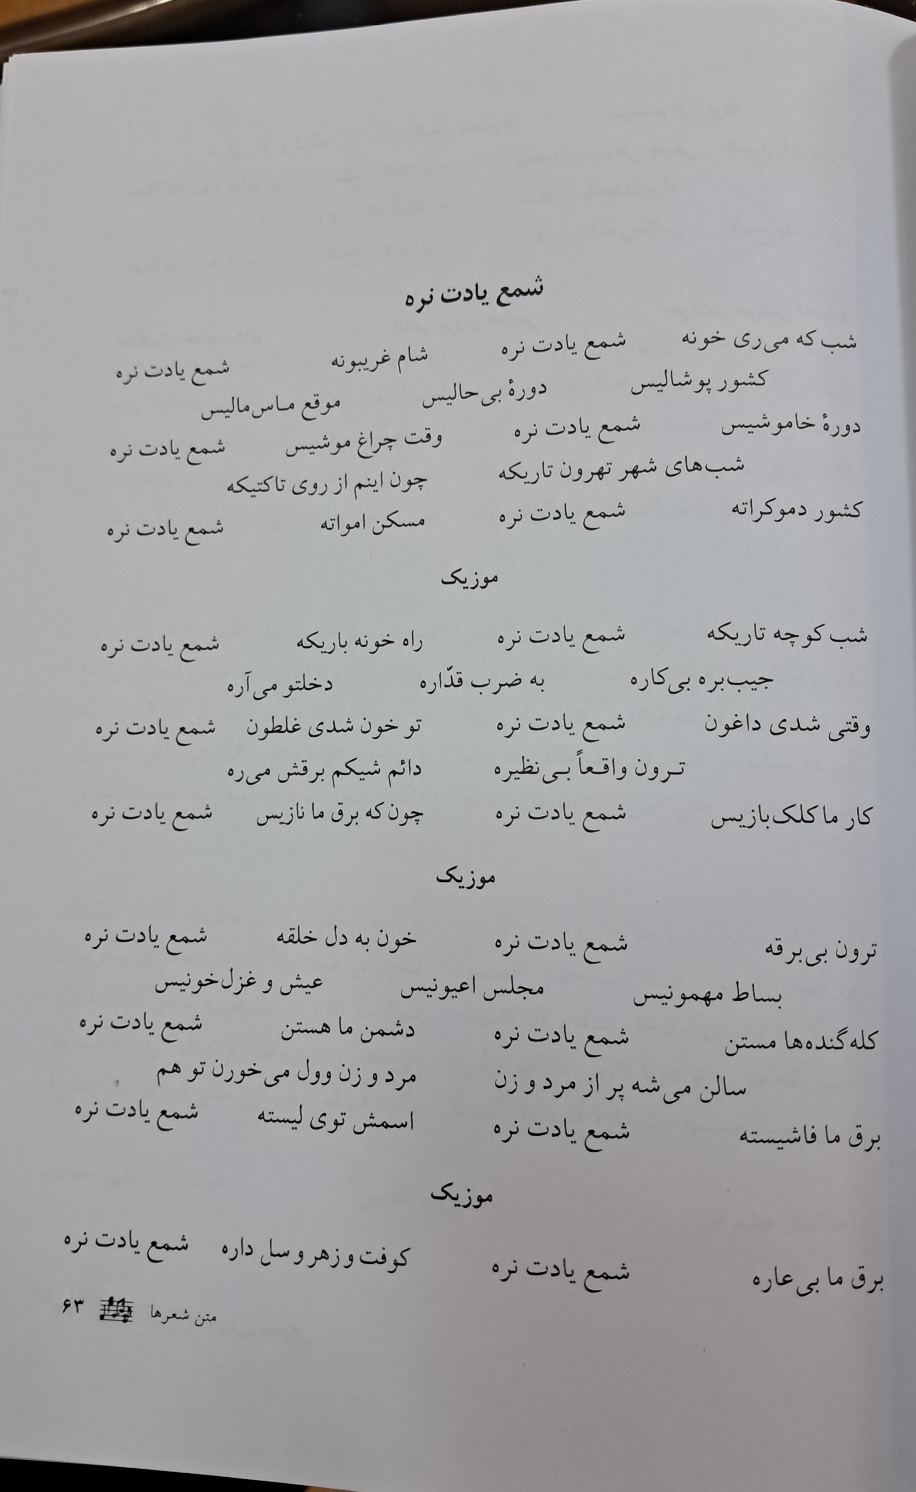 شمع یادت نره
شب که می‌ری خونه شمع یادت نره شام غریبونه شمع یادت نره
کشور پوشالیس دورهٔ بی‌حالیس موقع ماس‌مالیس
دورهٔ خاموشیس شمع یادت نره وقت چراغ موشیس شمع یادت نره
شب‌های شهر تهرون تاریکه چون اینم از روی تاکتیکه
کشور دموکراته شمع یادت نره مسکن امواته شمع یادت نره
موزیک
شب کوچه تاریکه شمع یادت نره راه خونه باریکه شمع یادت نره
جیب‌بره بی‌کاره به ضرب قدّاره دخلتو می‌آره
وقتی شدی داغون شمع یادت نره تو خون شدی غلطون شمع یادت نره
ترون واقعاً بی‌نظیره دائم شیکم برقش می‌ره
کار ما کلک‌بازیس شمع یادت نره چون که برق ما نازیس شمع یادت نره
موزیک
ترون بی‌برقه شمع یادت نره خون به دل خلقه شمع یادت نره
بساط مهمونیس مجلس اعیونیس عیش و غزل‌خونیس
کله‌گنده‌ها مستن شمع یادت نره دشمن ما هستن شمع یادت نره
سالن می‌شه پر از مرد و زن مرد و زن وول می‌خورن تو هم
برق ما فاشیسته شمع یادت نره اسمش توی لیسته شمع یادت نره
موزیک
برق ما بی‌عاره شمع یادت نره کوفت و زهر و سل داره شمع یادت نره
متن شعرها ۶۳